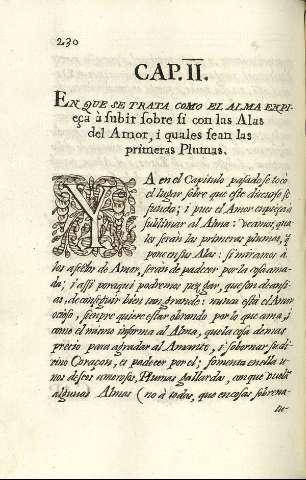 230
CAP. II.
EN QUE SE TRATA COMO EL ALMA ENPI-
eça à subir sobre si con las Alas
del Amor, i quales sean las
primeras Plumas.
YA en el Capitulo pasado se toco
el lugar sobre que este discurso se
funda; i pues el Amor enpieça a
sublimar al Alma: veamos, qua-
les serán las primeras plumas, q̃
pone en sus Alas: si miramos a
los afectos de Amor, serán de padecer por la cosa ama-
da; i assi por aqui podremos pensar, que son de ansi-
as, de conseguir bien tan grande: nunca està el Amor
ocioso, sienpre quiere estar obrando por lo que ama, i
como él mismo informa al Alma, que la cosa de mas
precio para agradar al Amante, i sobornar su di-
vino Coraçon, es padecer por el; fomenta en ella u-
nos deseos amorosos, Plumas gallardas, con que vuelā
algunas Almas (no à todas, que en cosas sobrena-
tu-